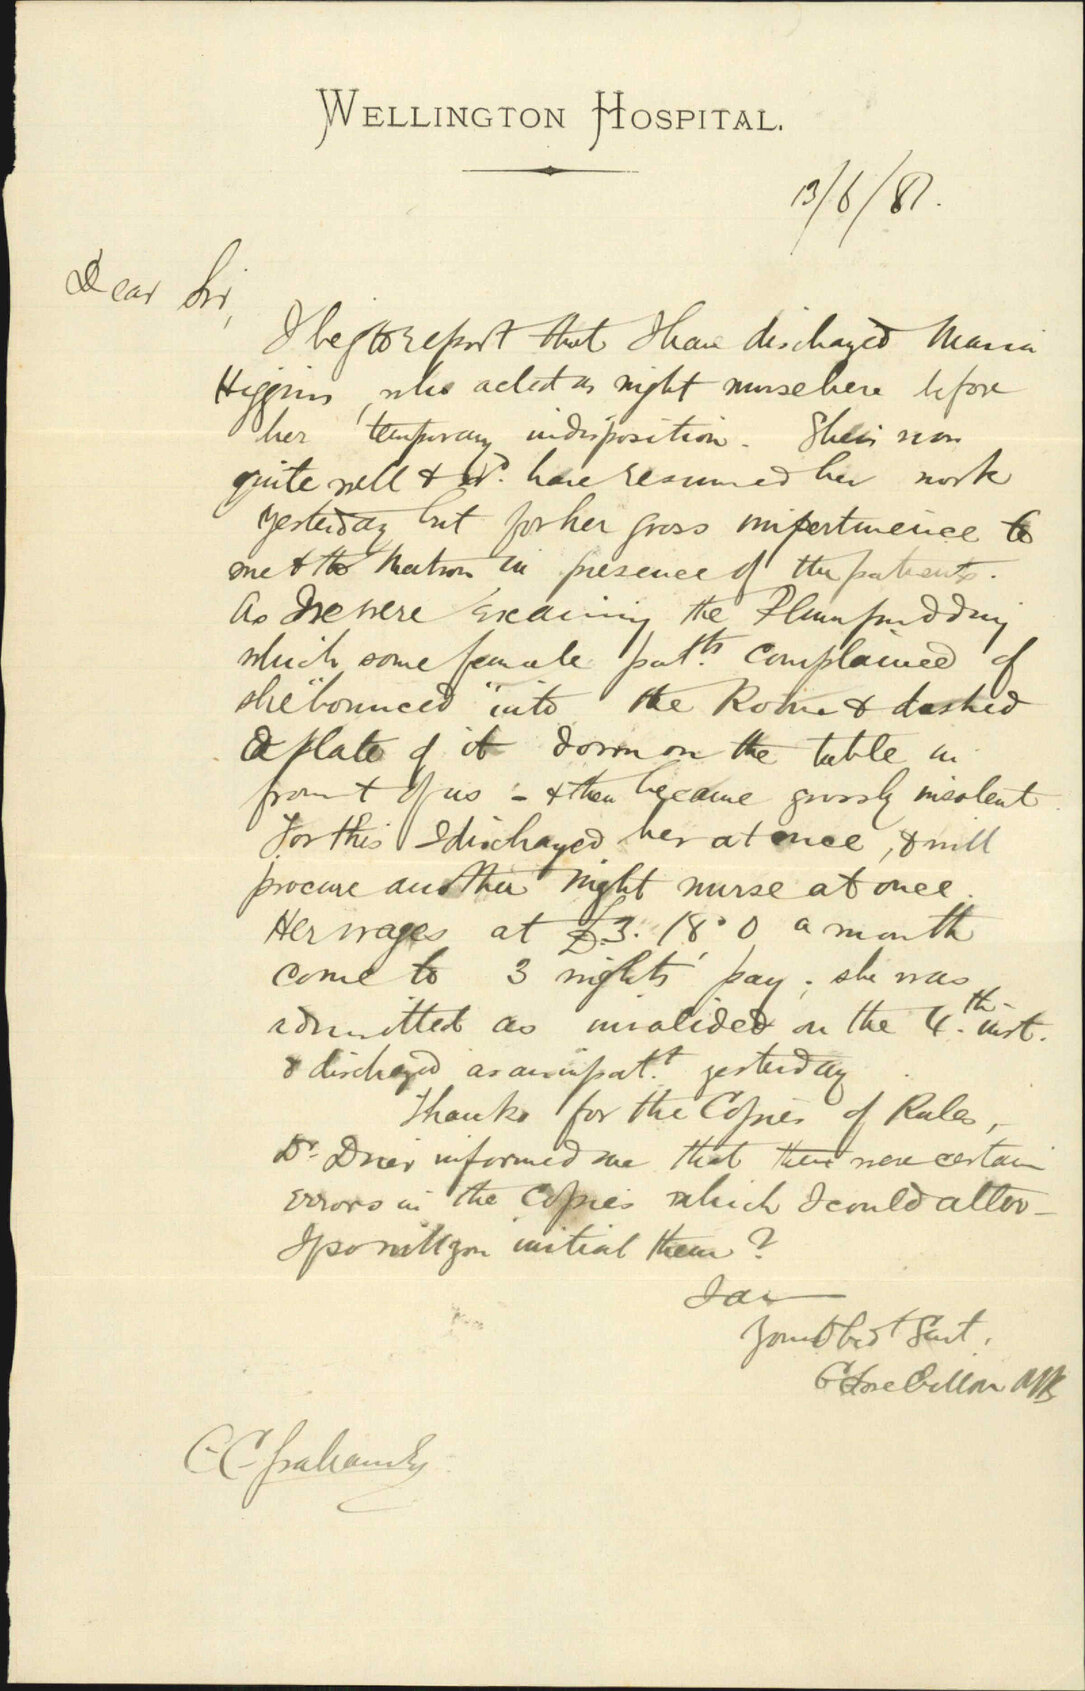 WELLINGTON HOSPITAL.
13/6/87.
Dear Sir,
I beg to report that I have discharged Maria
Higgins, who acted as night nurse here before
her temporary indisposition. She is now
quite well & wd. have resumed her work
yesterday but for her gross impertinence to
me & the Matron in presence of the patients.
As we were examining the Plumpudding
which some female patts. complained of
she "bounced" into the Room & dashed
a plate of it down on the table in
front of us - & then became grossly insolent
For this I discharged her at once, & will
procure another night nurse at once.
Her wages at £3.18.0 a month
come to 3 nights' pay; she was
admitted as invalided on the 4th. inst.
& discharged as an inpatt. yesterday.
Thanks for the Copies of Rules,
Dr. informed me that there were certain
errors in the Copies which I could alter -
If so will you initial them?
I am
Your Obedt Servt.
MB
C C Graham Esq